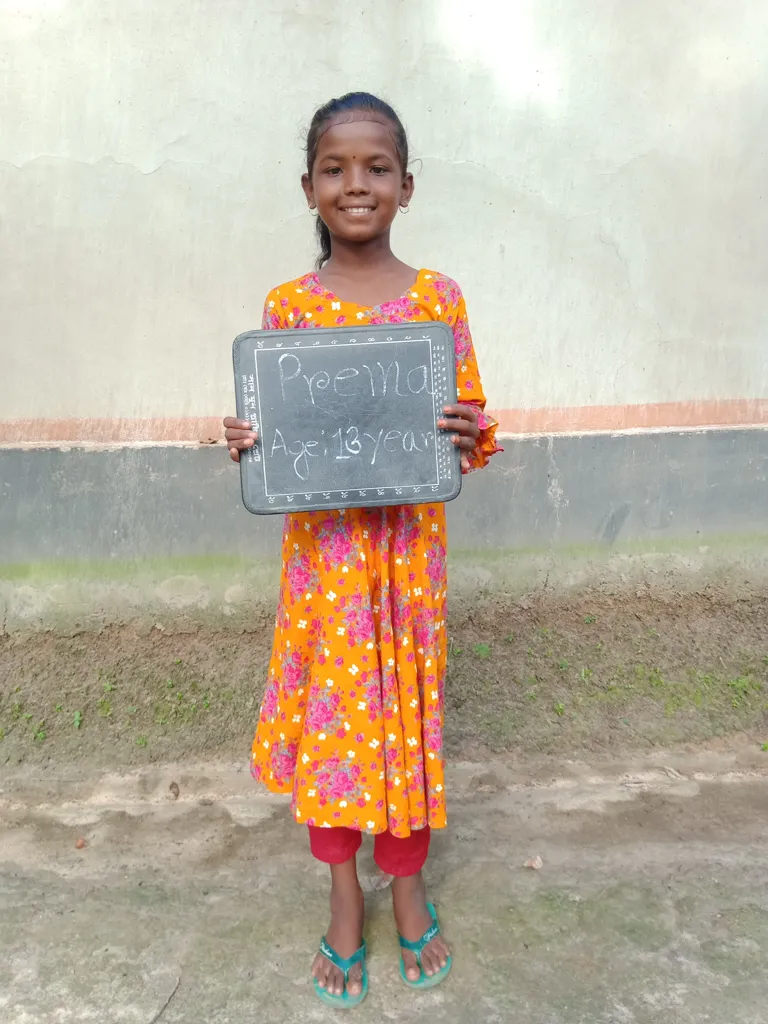 Prema
Age: 13 year